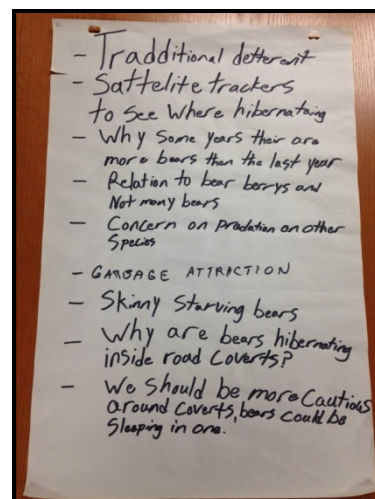 - Tradditional detterent
- Sattelite trackers
to see where hibernataing
- Why some years their are
more bears then the last year
- Relation to bear berrys and
Not many bears
- Concern on predation on other
Species
- GARBAGE ATTRACTION
- Skinny Starving bears
- Why are bears hibernating
inside road Coverts?
- We Should be more Cautious
around Coverts, bears could be
Sleeping in one.